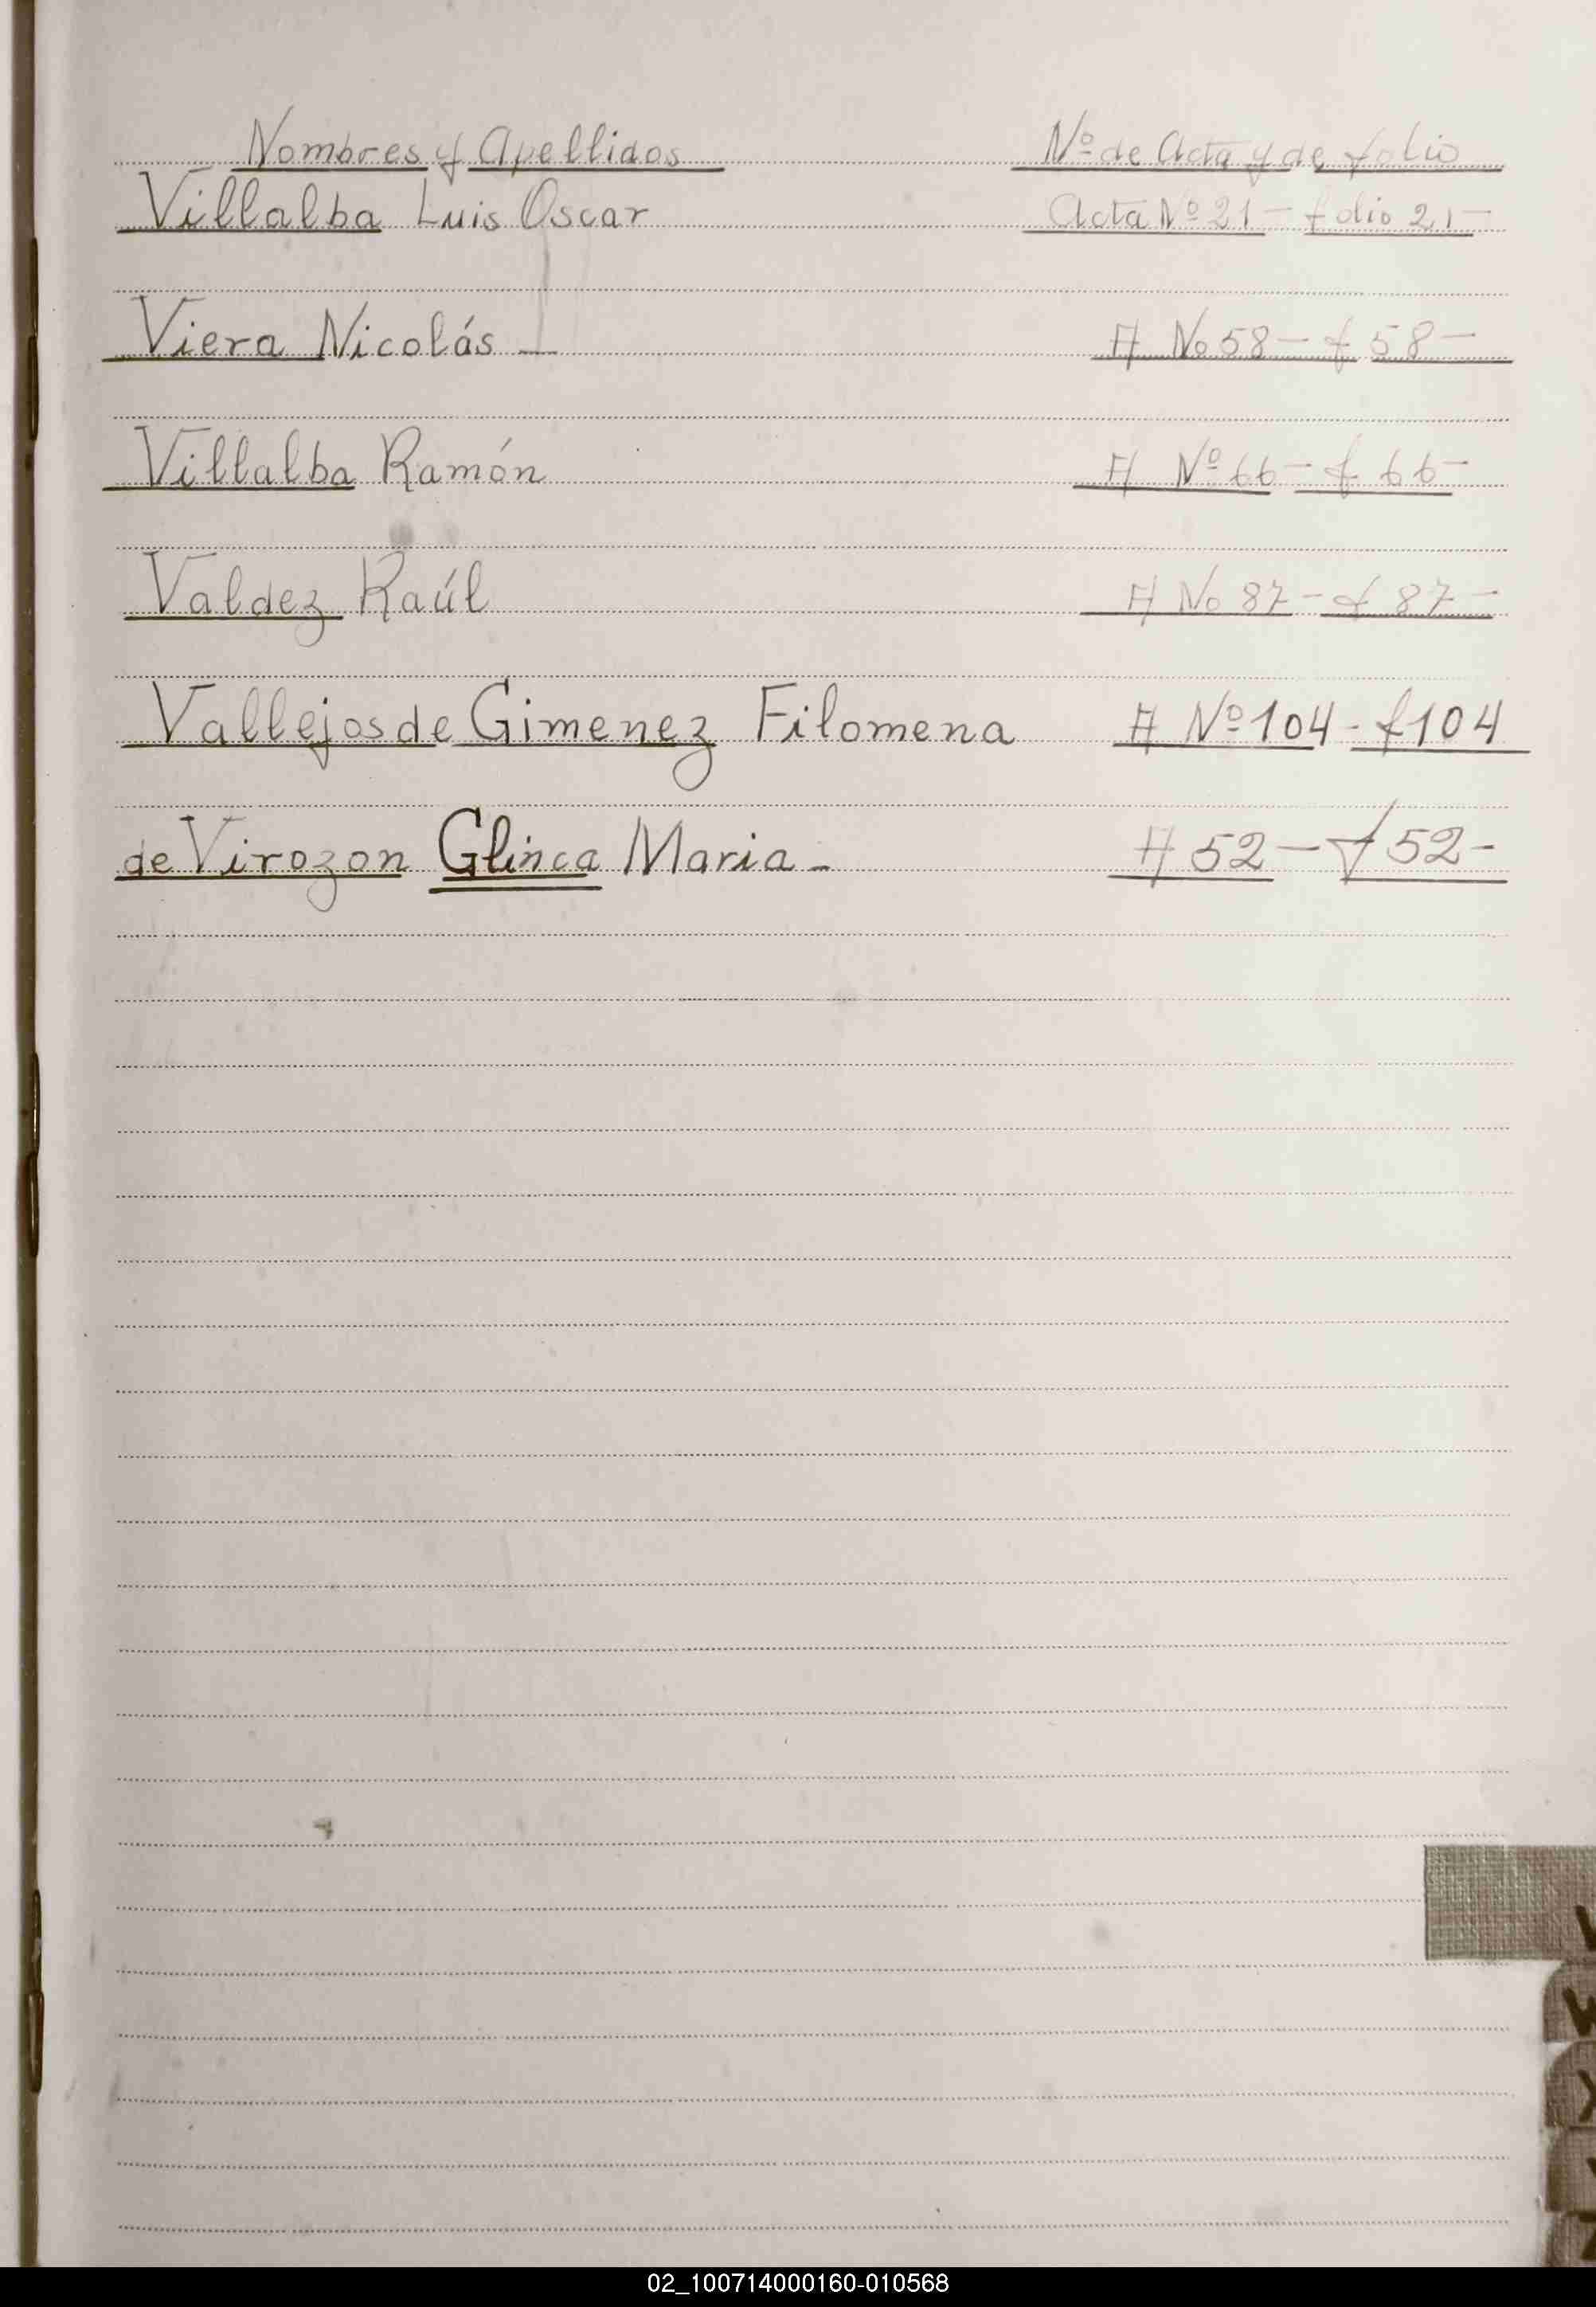 Nombres y Apellidos Nº de Acta y de folio
Villalba Luis Oscar Acta Nº 21 - folio 21 -
Viera Nicolás - A No 58 - f 58 -
Villalba Ramón A Nº 66 - f 66 -
Valdez Raúl A No 87 - f 87 -
Vallejos de Gimenez Filomena A Nº 104 - f 104
de Virozon Glinca Maria - A 52 - f 52 -
V
W
X
02_100714000160-010568